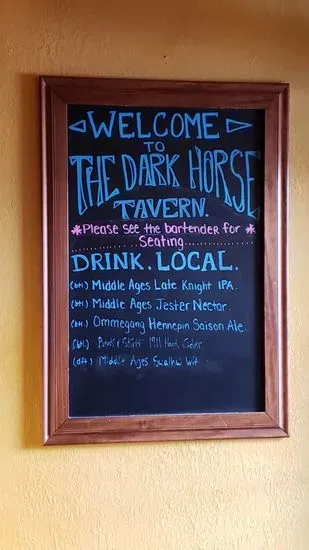 WELCOME
TO
THE DARK HORSE
TAVERN.
*Please see the bartender for *
Seating...
DRINK. LOCAL.
(btl) Middle Ages Late Knight IPA.
(btl) Middle Ages Jester Nectar.
(btl) Ommegang Hennepin Saison Ale.
(btl) 1911 Hard Cider
(dft) Middle Ages Swallow Wit